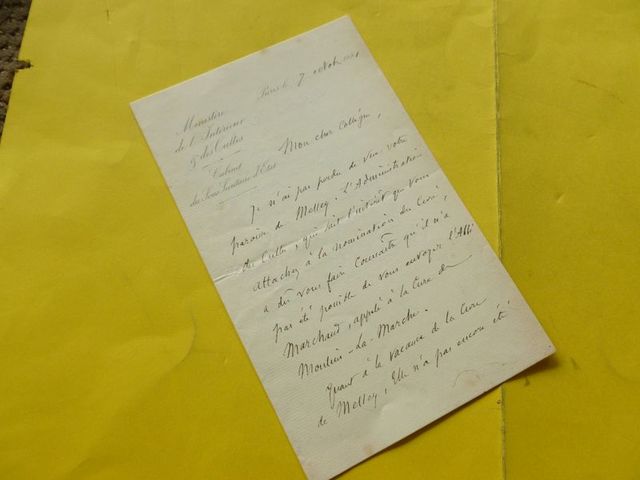 Ministère
de l'Intérieur
& des Cultes
Cabinet
du Sous Secrétaire d'Etat
Paris le 7 octob.
Mon cher Collègue,
Je n'ai pas perdu de vue votre
paroisse de Melley. L'Administration
des Cultes, qui sait l'intérêt que vous
attachez à la nomination du Curé,
a dû vous faire connaître qu'il n'a
pas été possible de vous envoyer l'Abbé
Marchand, appelé à la Cure de
Moulin-La-Marche.
Quant à la vacance de la Cure
de Melley, Elle n'a pas encore été